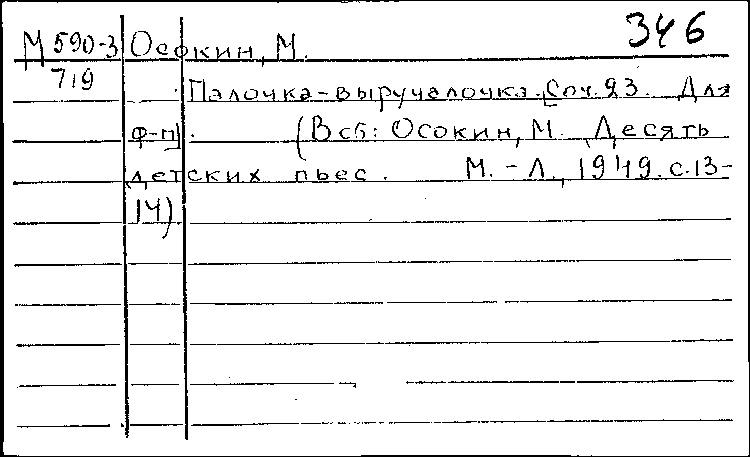 346
М 590-3 Осокин, М.
719
Палочка-выручалочка. [Соч. 23. Для
ф-п]. (В сб: Осокин, М. Десять
детских пьес. М.-Л., 1949. с.13-
14)